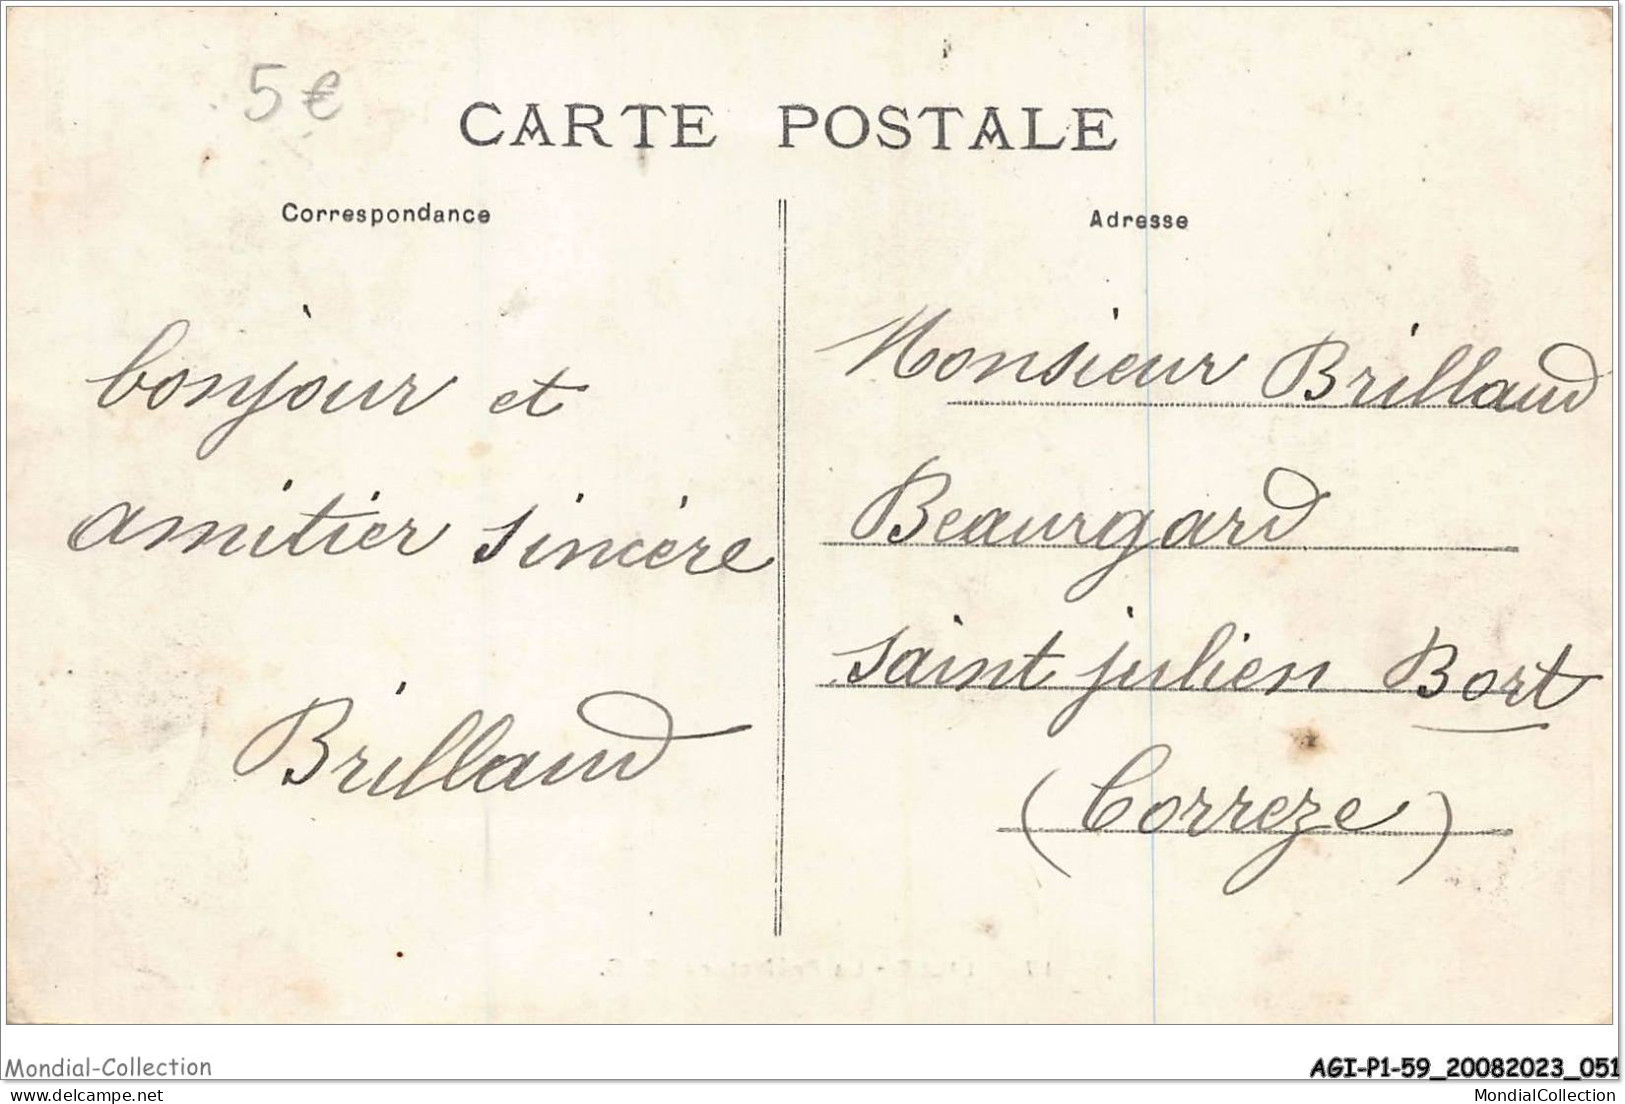 5€
CARTE POSTALE
Correspondance
bonjour et
amitier sincère
Brillaud
Adresse
Monsieur Brillaud
Beaurgard
saint julien Bort
(Correze)
Mondial-Collection
AGI-P1-59_20082023_051
delcampe.net
MondialCollection